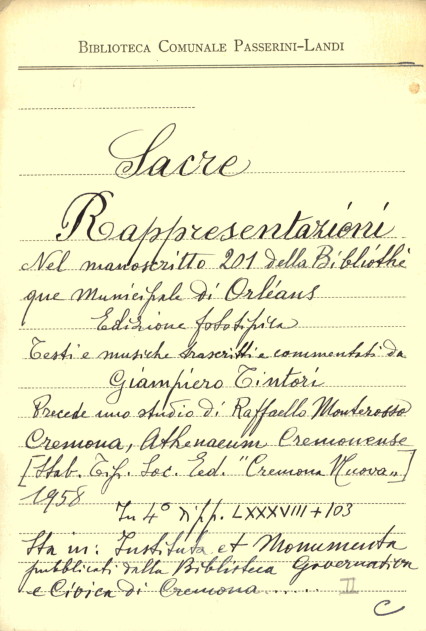 BIBLIOTECA COMUNALE PASSERINI-LANDI
Sacre
Rappresentazioni
Nel manoscritto 201 della Bibliothè
que Municipale di Orléans
Edizione fototipica
Testi e musiche trascritti e commentati da
Giampiero Tintori
Precede uno studio di Raffaello Monterosso
Cremona, Athenaeum Cremonense
[Stab. Tip. Soc. Ed. "Cremona Nuova„]
1958
In 4° di pp. LXXXVIII + 103
Sta in: Instituta et Monumenta
pubblicati dalla Biblioteca Governativa
e Civica di Cremona ..... II
C